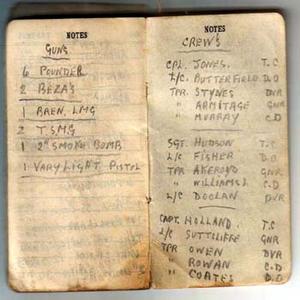 NOTES
GUNS
6 POUNDER
2 BEZA'S
1 BREN, LMG
2 T.SMG
1 2" SMOKE BOMB
1 VARY LIGHT PISTOL
NOTES
CREW'S
CPL. JONES. T.C
L/C. BUTTERFIELD D.O
TPR. STYNES DVR
" ARMITAGE GNR
" MURRAY C.D
SGT. HUDSON T.C
L/C FISHER D.O
TPR AKEROYD GNR
" WILLIAMS J. C.D
L/C DOOLAN DVR
CAPT. HOLLAND. T.C
L/C SUTTCLIFFE GNR
TPR OWEN DVR
" ROWAN C.D
" COATES D.O